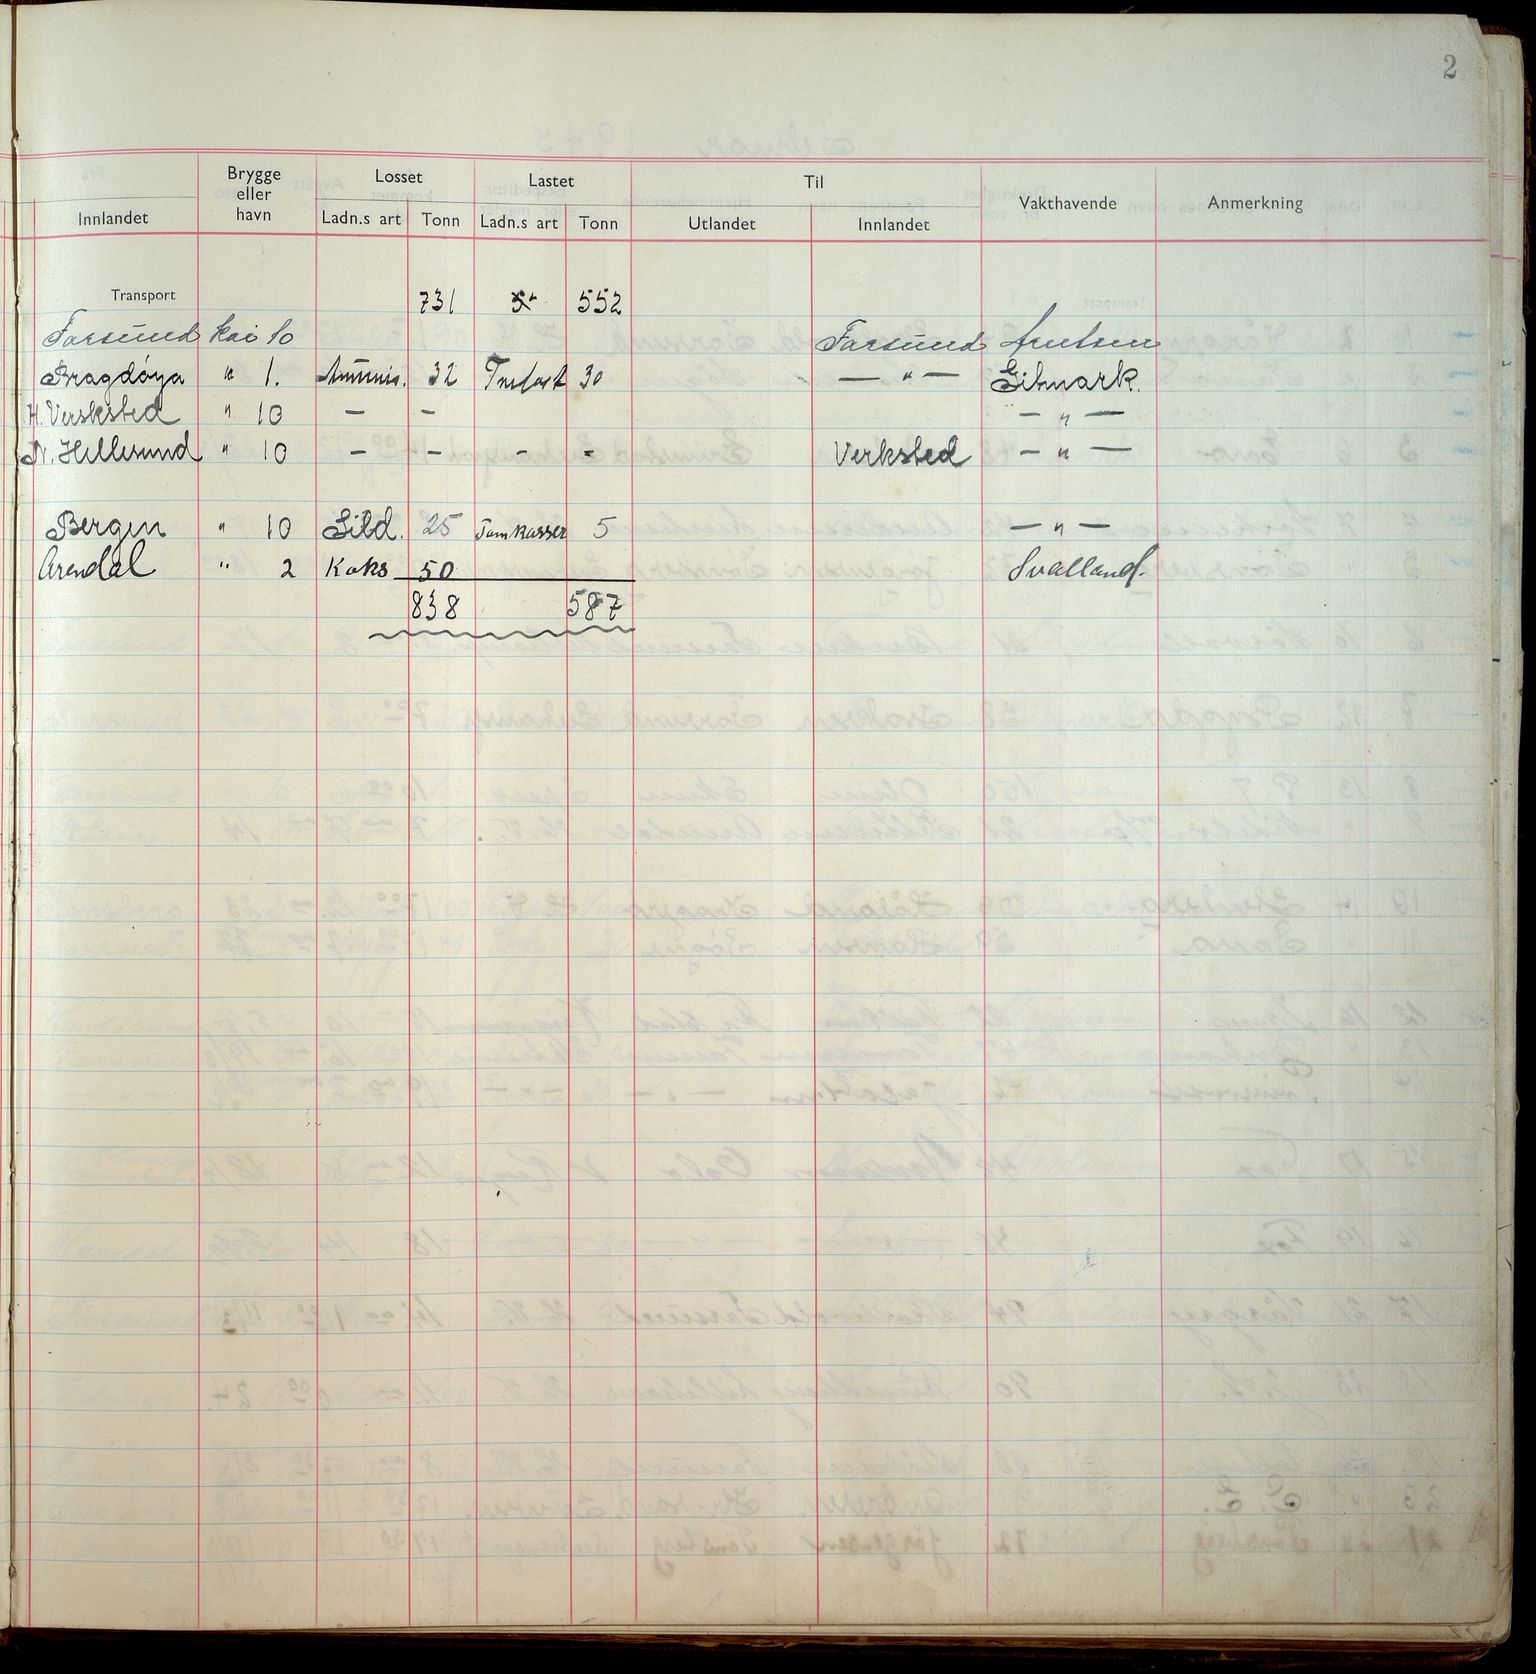 2
Brygge eller havn Losset Lastet Til Vakthavende Anmerkning
Innlandet Ladn.s art Tonn Ladn.s art Tonn Utlandet Innlandet
Transport 731 552
Farsund kai 10 Farsund Arntsen
Bragdøya " 1. Ammunis. 32 30 — " — Gitmark.
H. Versksted " 10 — — — " —
N. Hellesund " 10 — — - - Verksted — " —
Bergen " 10 Sild. 25 Tomkasser 5 — " —
Arendal " 2 Koks 50 Svalland.
838 587